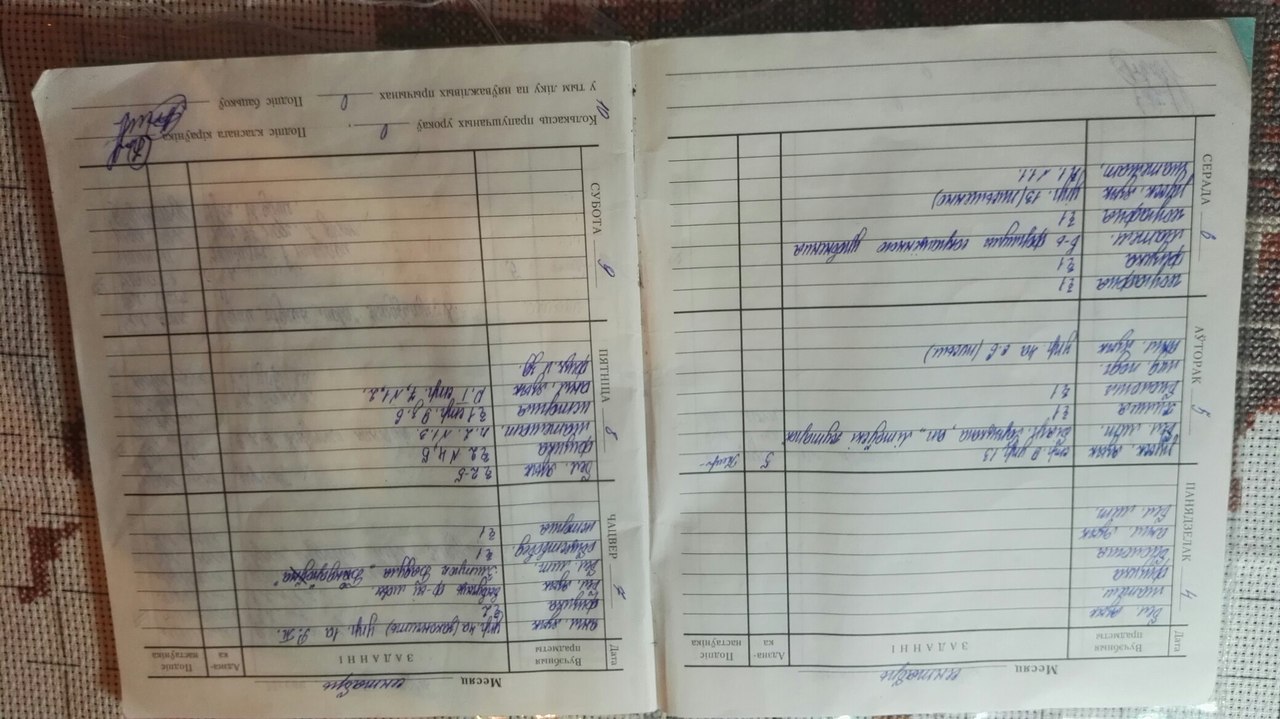 Месяц сентябрь
Дата Вучэбныя прадметы ЗАДАННІ Адзна-ка Подпіс настаўніка
ПАНЯДЗЕЛАК 4
бел. язык
матем.
физика
биология
англ. язык
бел. лит.
АЎТОРАК 5
русск. язык стр. 8 упр 13 5
бел. лит. Гарэцкага, ап. „Літоўскі хутарок
химия §1
биология §1
англ. язык упр 4а с.6 (письм)
СЕРАДА 6
география §1
физика §1
матем. формулы сокращенного
география §1
русск. язык упр. 13 (письменно)
математ. П.1. №1.1.
Месяц сентябрь
Дата Вучэбныя прадметы ЗАДАННІ Адзна-ка Подпіс настаўніка
ЧАЦВЕР 7
англ. язык упр. 4а (закончить) упр. 1а Р.Т.
физика §2
бел. язык вывучыць мовы.
бел. лит. Змитрок Бядуля „Бондароўна"
обществовед. §1
история §1
ПЯТНІЦА 8
бел. язык § 2-5
физика §2 №4,5
математ. п.2. №1.3.
история §1 стр. 9 з. 6
англ. язык Р.Т стр. 7, №1,2.
физ. и зд.
СУБОТА 9
10
Колькасць прапушчаных урокаў 0 . Подпіс класнага кіраўніка
у тым ліку па няўважлівых прычынах 0 Подпіс бацькоў